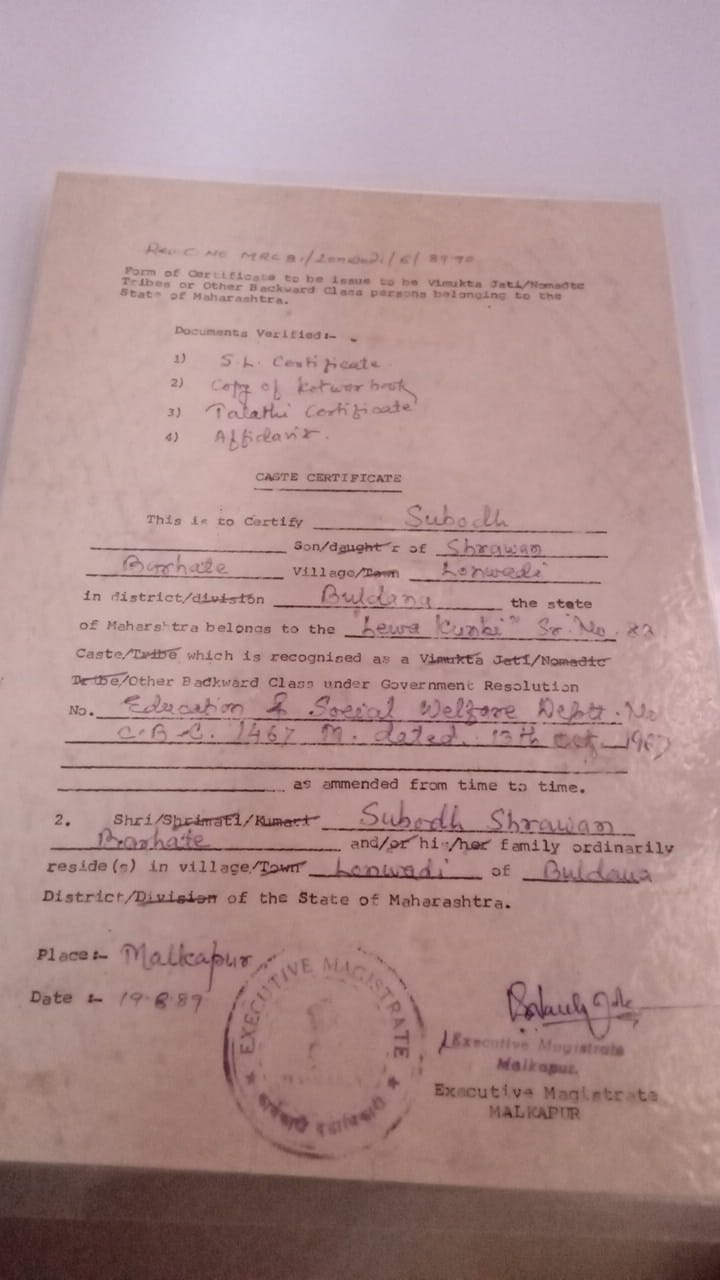 Rev. C. No MRC 81/Lonwadi/6/89-90
Form of Certificate to be issue to be Vimukta Jati/Nomadic
Tribes or Other Backward Class persons belonging to the
State of Maharashtra.
Documents Verified:-
1) S.L. Certificate
2) Copy of Kotwar book
3) Talathi Certificate
4) Affidavit.
CASTE CERTIFICATE
This is to Certify Subodh
Son/daught r of Shrawan
Barhate Village/Town Lonwadi
in district/division Buldana the state
of Maharshtra belongs to the "Lewa Kunbi" Sr. No. 82
Caste/Tribe which is recognised as a Vimukta Jati/Nomadic
Tribe/Other Backward Class under Government Resolution
No. Education & Social Welfare Deptt. No
C.B.C. 1467 M. dated. 13th oct. 1967
as ammended from time to time.
2. Shri/Shrimati/Kumari Subodh Shrawan
Barhate and/or his/her family ordinarily
reside(s) in village/Town Lonwadi of Buldana
District/Division of the State of Maharashtra.
Place:- Malkapur
Date :- 19-6-89
EXECUTIVE MAGISTRATE
Executive Magistrate
Malkapur.
Executive Magistrate
MALKAPUR